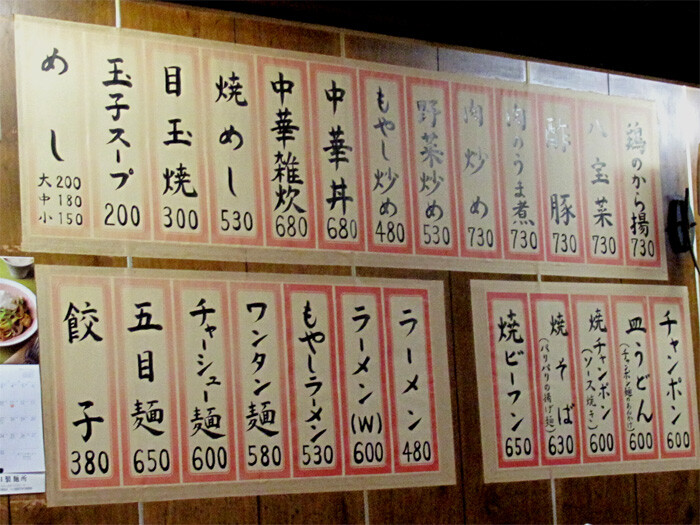 鶏のから揚 730
八宝菜 730
酢豚 730
肉のうま煮 730
肉炒め 730
野菜炒め 530
もやし炒め 480
中華丼 680
中華雑炊 680
焼めし 530
目玉焼 300
玉子スープ 200
めし
大200
中180
小150
チャンポン 600
皿うどん
(チャンポン麺のあんかけ)
600
焼チャンポン
(ソース焼き)
600
焼そば
(パリパリの揚げ麺)
630
焼ビーフン 650
ラーメン 480
ラーメン(W) 600
もやしラーメン 530
ワンタン麺 580
チャーシュー麺 600
五目麺 650
餃子 380
製麺所